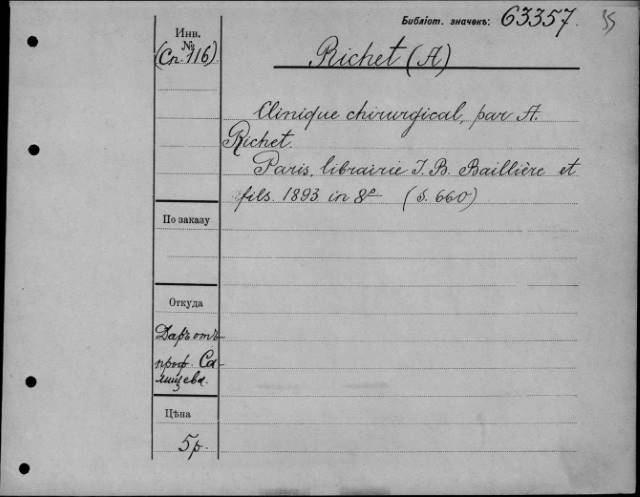 Библіот. значекъ: 63357. 35
Инв.
№
(Сп. 116)
Richet (A)
Clinique chirurgical, par A.
Richet.
Paris, librairie J. B. Baillière et
fils. 1893 in 8º (S. 660)
По заказу
Откуда
Даръ отъ
проф. Са
лищева.
Цѣна
5р.